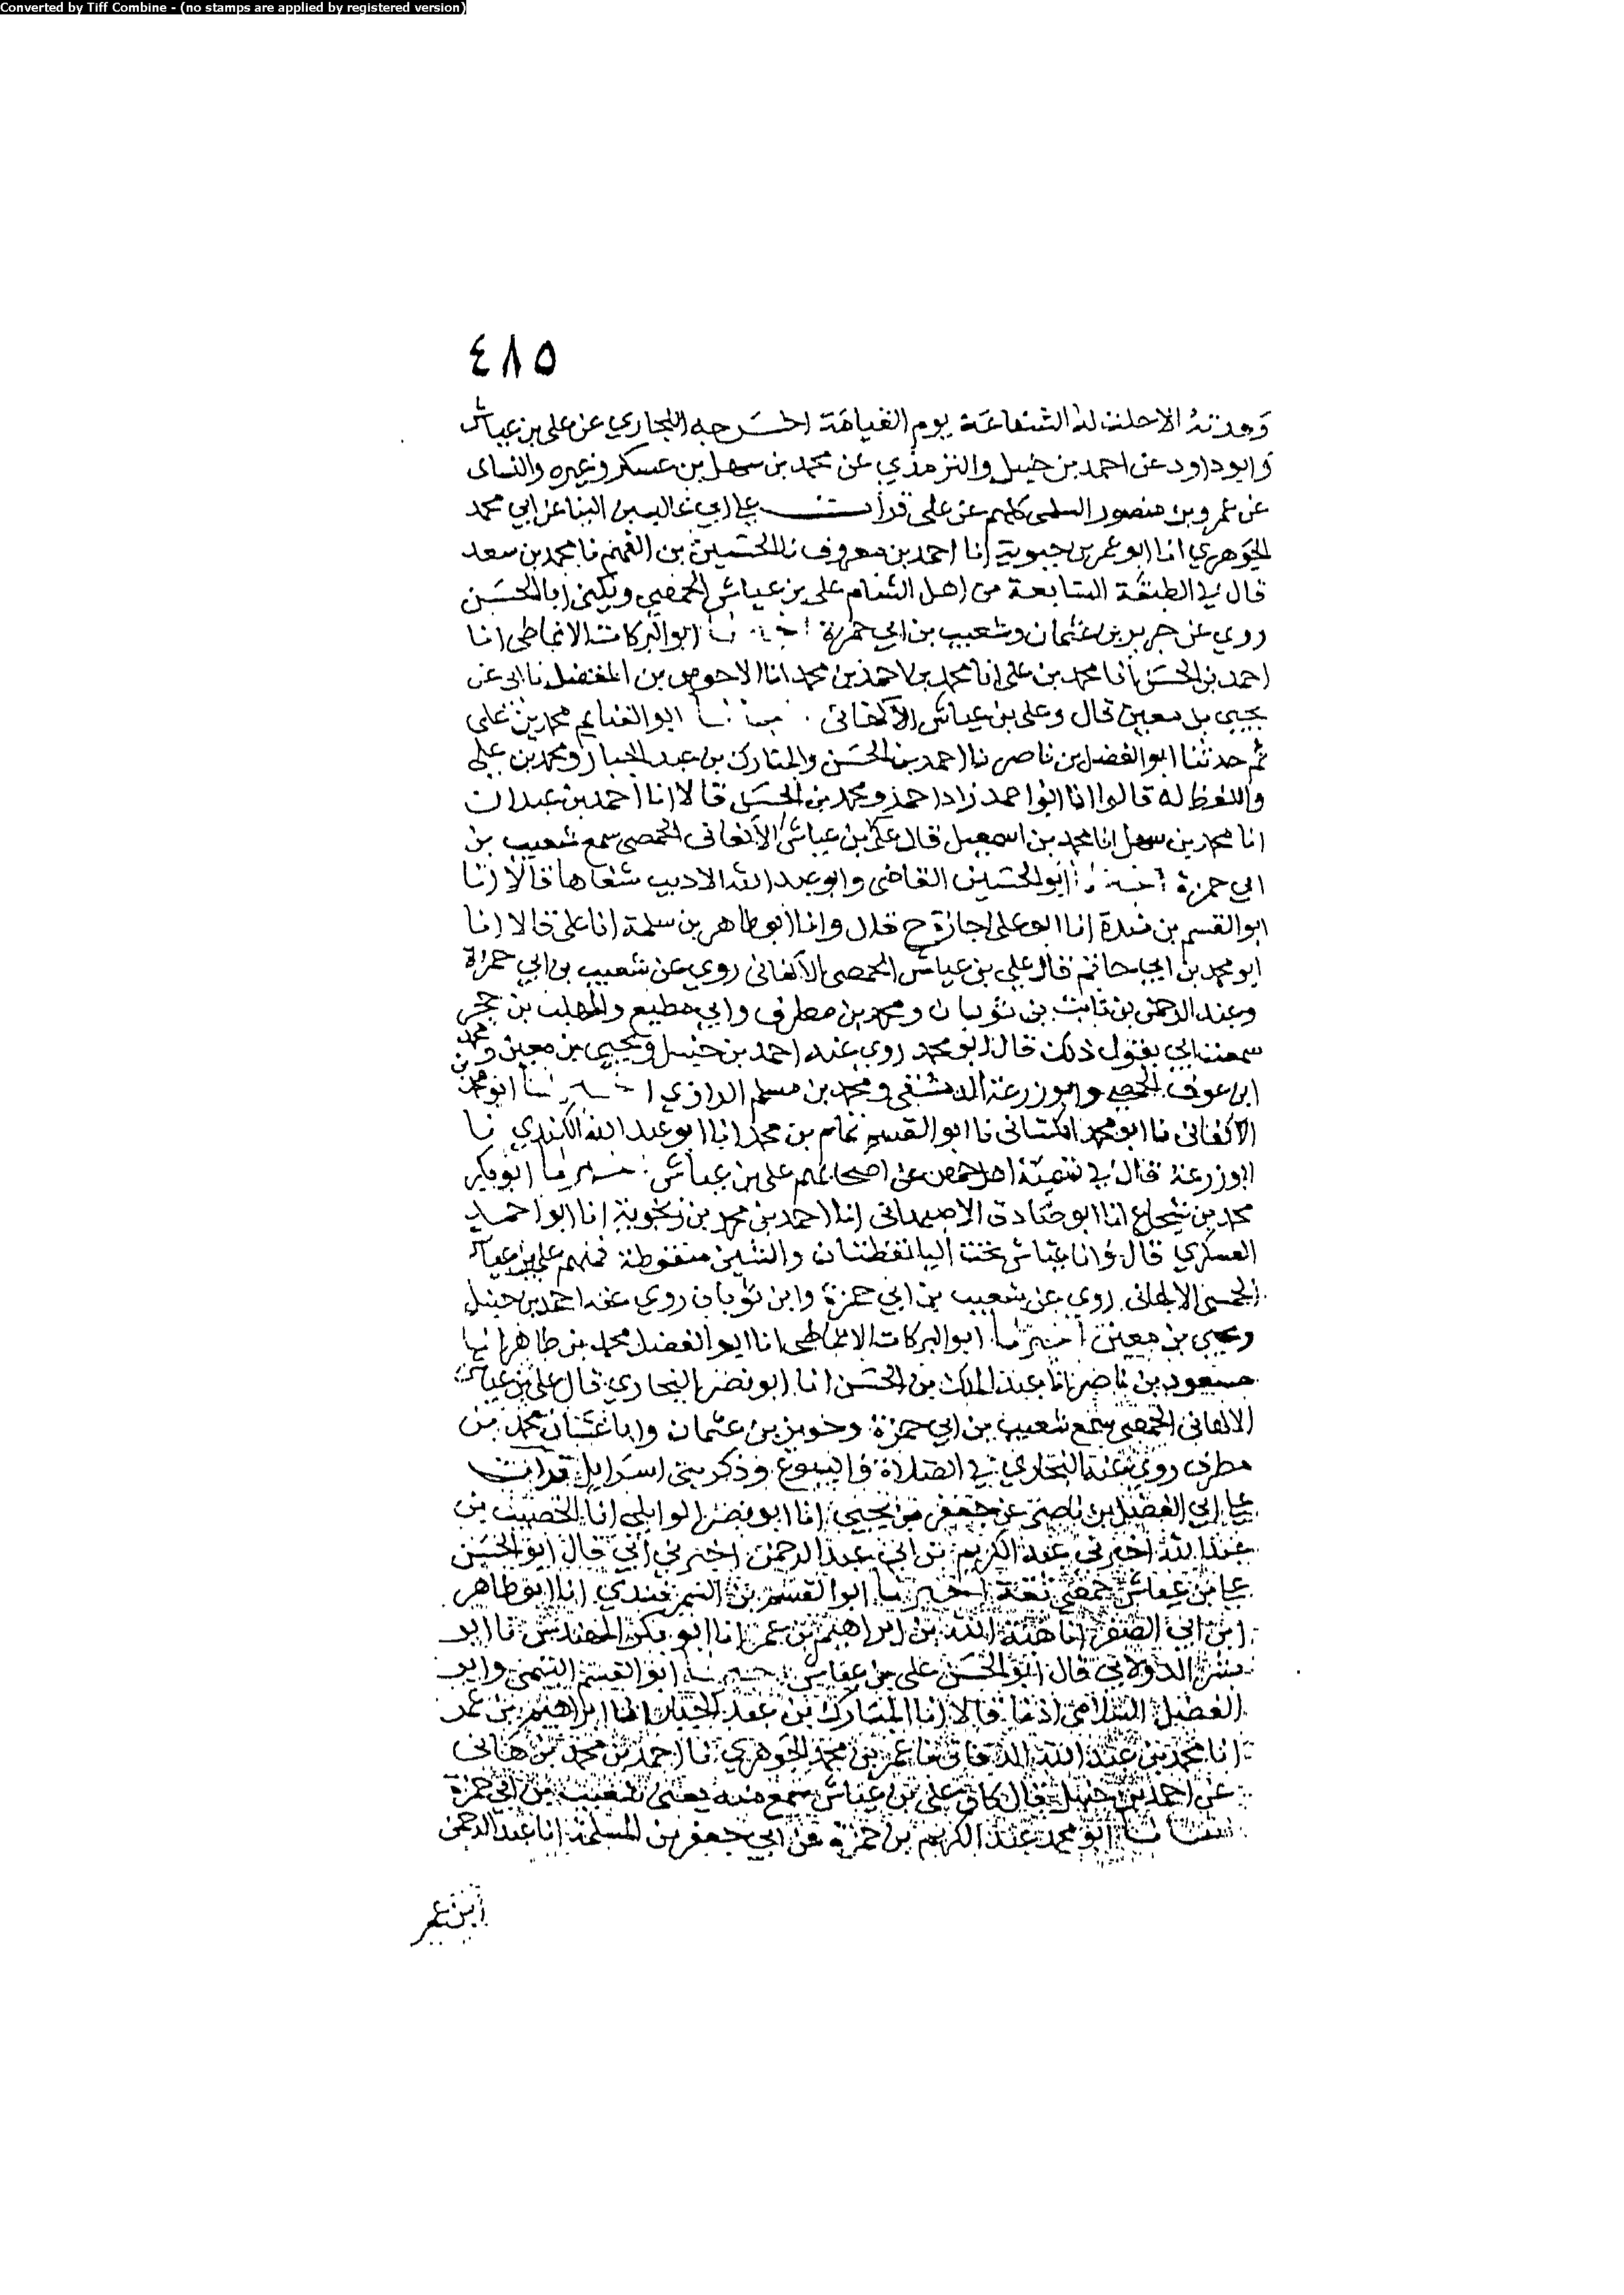 Converted by Tiff Combine - (no stamps are applied by registered version)
٤٨٥
وعدته الا حلت له الشفاعة يوم القيامة اخرجه البخاري عن على بن عياش
وابو داود عن احمد بن حنبل والترمذي عن محمد بن سهل بن عسكر وغيره والنساى
عن عمرو بن منصور السلمى كلهم عن على قرات على ابي غالب بن البنا عن ابي محمد
الجوهري انا ابو عمر بن حيوية انا احمد بن معروف نا الحسين بن الفهم نا محمد بن سعد
قال في الطبقة السابعة من اهل الشام على بن عياش الحمصي ويكنى ابا الحسن
روي عن جرير بن عثمان وشعيب بن ابي حمزة ابو البركات الانماطى انا
احمد بن الحسن انا محمد بن على انا محمد بن احمد بن محمد انا الاحوص بن المفضل نا ابى عن
يحيى بن معين قال وعلى بن عياش الالهانى ابو الغنايم محمد بن على
ثم حدثنا ابو الفضل بن ناصر نا احمد بن الحسن والمبارك بن عبد الجبار ومحمد بن على
واللفظ له قالوا انا ابو احمد زاد احمد ومحمد بن الحسن قالا انا احمد بن عبدان
انا محمد بن سهل انا محمد بن اسمعيل قال على بن عياش الالهانى الحمصى سمع شعيب بن
ابي حمزة ابو الحسين القاضى وابو عبد الله الاديب شفاها قالا انا
ابو القسم بن مندة انا ابو على اجازة ح قال وانا ابو طاهر بن سلمة انا على قالا انا
ابو محمد بن ابي حاتم قال على بن عياش الحمصى الالهانى روي عن شعيب بن ابي حمزة
وعبد الرحمن بن ثابت بن ثوبان ومحمد بن مطرف وابي مطيع والمهلب بن حجر
سمعت ابي يقول ذلك قال ابو محمد روى عنه احمد بن حنبل ويحيى بن معين ومحمد
ابن عوف الحمصي وابو زرعة الدمشقى ومحمد بن مسلم الرازي ابو محمد بن
الاكفانى نا ابو محمد الكتانى نا ابو القسم تمام بن محمد انا ابو عبد الله الكندي نا
ابو زرعة قال في تسمية اهل حمص عن اصحابهم على بن عياش ابو بكر
محمد بن شجاع انا ابو صادق الاصبهانى انا احمد بن محمد بن زنجوية انا ابو احمد
العسكري قال وانا عياش تحت اليا نقطتان والشين منقوطة فمنهم على بن عياش
الحمصى الالهانى روي عن شعيب بن ابي حمزة وابن ثوبان روي عنه احمد بن حنبل
ويحيى بن معين اخبرنا ابو البركات الانماطى انا ابو الفضل محمد بن طاهر انا
مسعود بن ناصر انا عبد الملك بن الحسن انا ابو نصر البخاري قال على بن عياش
الالهانى الحمصى سمع شعيب بن ابي حمزة وحريز بن عثمان وابا غسان محمد بن
مطرف روي عنه البخاري في الصلاة والبيوع وذكر بنى اسرايل قرات
على ابي الفضل بن ناصر عن جعفر بن يحيى انا ابو نصر الوايلى انا الخصيب بن
عبد الله اخبرني عبد الكريم بن ابي عبد الرحمن اخبرني ابي قال ابو الحسن
على بن عياش حمصى ثقة اخبرنا ابو القسم بن السمرقندي انا ابو طاهر
ابن ابي الصقر انا هبة الله بن ابراهيم بن عمر انا ابو بكر المهندس نا ابو
بشر الدولابي قال ابو الحسن على بن عياش ابو القسم التيمى وابو
الفضل السلامى اذنا قالا انا المبارك بن عبد الجبار انا ابراهيم بن عمر
انا محمد بن عبد الله الدقاق نا عمر بن محمد الجوهري نا احمد بن محمد بن هانى
عن احمد بن حنبل قال كان على بن عياش سمع منه يعنى شعيب بن ابي حمزة
ابو محمد عبد الكريم بن حمزة عن ابي جعفر بن المسلمة انا عبد الرحمن
ابن عمر